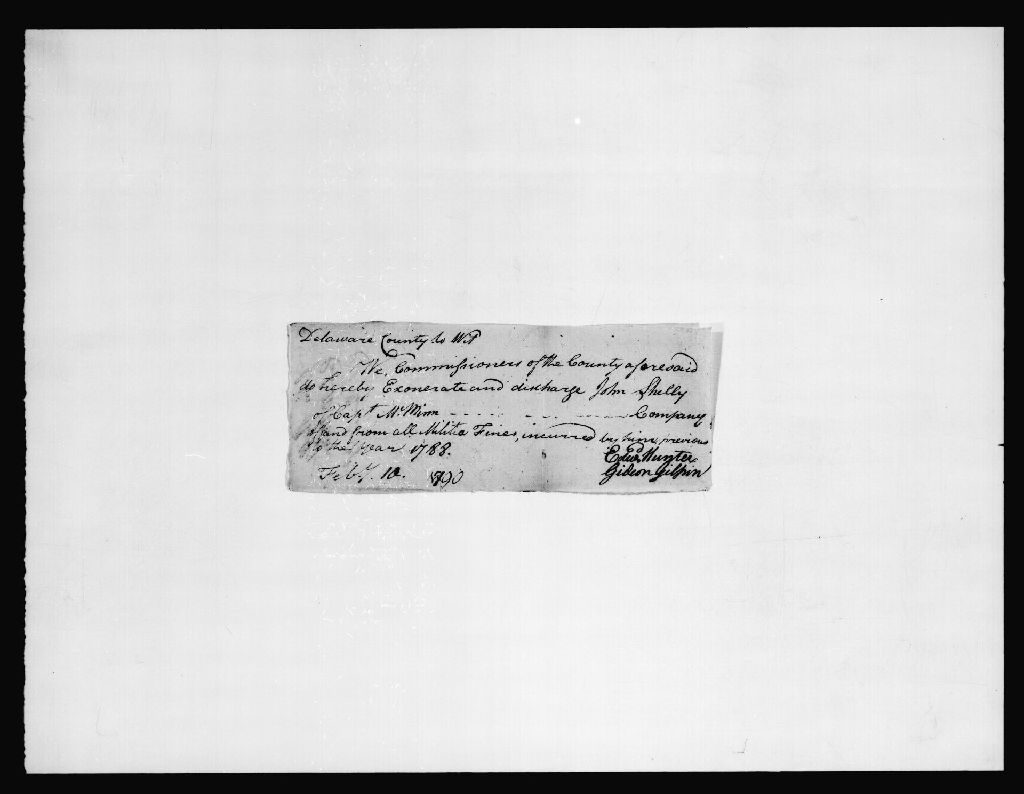 Delaware County to Wit
We, Commissioners of the County aforesaid
do hereby Exonerate and discharge John Shelly
of Capt McMinn Company
of and from all Militia Fines, incurred by him, previous
to the Year 1788.
Feby. 10. 1790
Edwd. Hunter
Gideon Gilpin